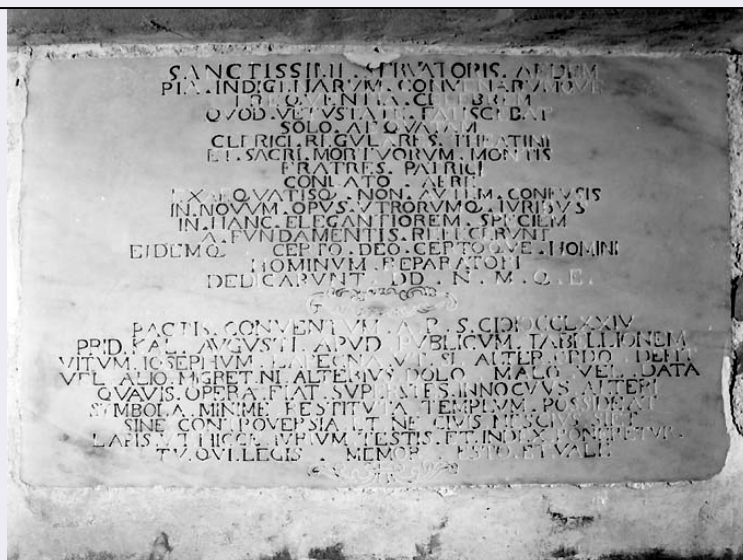 SANCTISSIMI . SERVATORIS . AEDEM
PIA . INDIGENARVM . CONVENARVMQVE
FREQVENTIA . CELEBREM
QVOD . VETVSTATE . FATISCEBAT
SOLO . AEQVATAM
CLERICI . REGVLARES . THEATINI
ET . SACRI . MORTVORVM . MONTIS
FRATRES . PATRICI
CONLATO . AERE
EXAEQVATISQ . NON . AVTEM . CONFVSIS
IN . NOVVM . OPVS . VTRORVMQ . IVRIBVS
IN . HANC . ELEGANTIOREM . SPECIEM
A . FVNDAMENTIS . REFECERVNT
EIDEMQ . CEPTO . DEO . CEPTOQVE . HOMINI
HOMINVM . REPARATORI
DEDICARVNT . DD . N . M . Q . E .
PACTIS . CONVENTVM . A . R . S . CIƆIƆCCLXXIV
PRID . KAL . AVGVSTI . APVD . PVBLICVM . TABELLIONEM
VITVM . IOSEPHVM . LAREGNA . VT . SI . ALTER . ORDO . DEFIT
VEL . ALIO . MIGRET . NI . ALTERIVS . DOLO . MALO . VEL . DATA
QVAVIS . OPERA . FIAT . SVPERSTES . INNOCVVS . ALTERI
SYMBOLA . MINIME . RESTITVTA . TEMPLVM . POSSIDEAT
SINE . CONTROVERSIA . ET . NE . CIVIS . NESCIVS . SIET
LAPIS . VT . HICCE . IVRIVM . TESTIS . ET . INDEX . PONERETVR .
TV . QVI . LEGIS . MEMOR . ESTO . ET . VALE